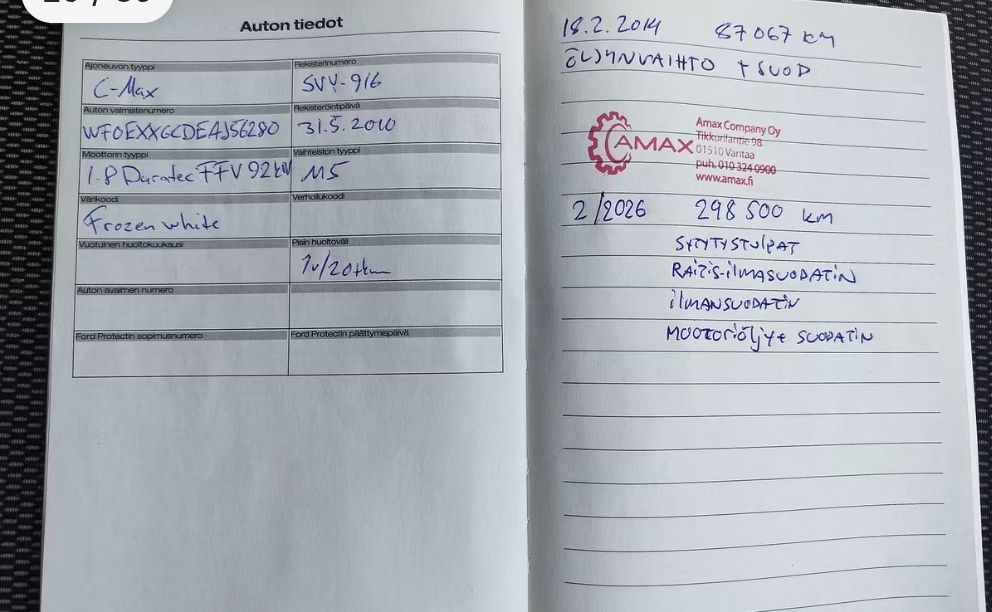 Auton tiedot
Ajoneuvon tyyppi
C-Max
Rekisterinumero
SVY-916
Auton valmistenumero
WF0EXXGCDEAJ56280
Rekisteröintipäivä
31.5.2010
Moottorin tyyppi
1.8 Duratec FFV 92kW
Vaihteiston tyyppi
M5
Värikoodi
Frozen white
Verhoilukoodi
Vuotuinen huoltokuukausi
Pisin huoltoväli
1v/20tkm
Auton avaimen numero
Ford Protectin sopimusnumero
Ford Protectin päättymispäivä
18.2.2014 87067 km
ÖLJYNVAIHTO + SUOD
AMAX
Amax Company Oy
Tikkurilantie 98
01510 Vantaa
puh. 010 324 0900
www.amax.fi
2/2026 298 500 km
SYTYTYSTULPAT
RAITIS-ILMASUODATIN
ILMANSUODATIN
MOOTORIÖLJY+ SUODATIN